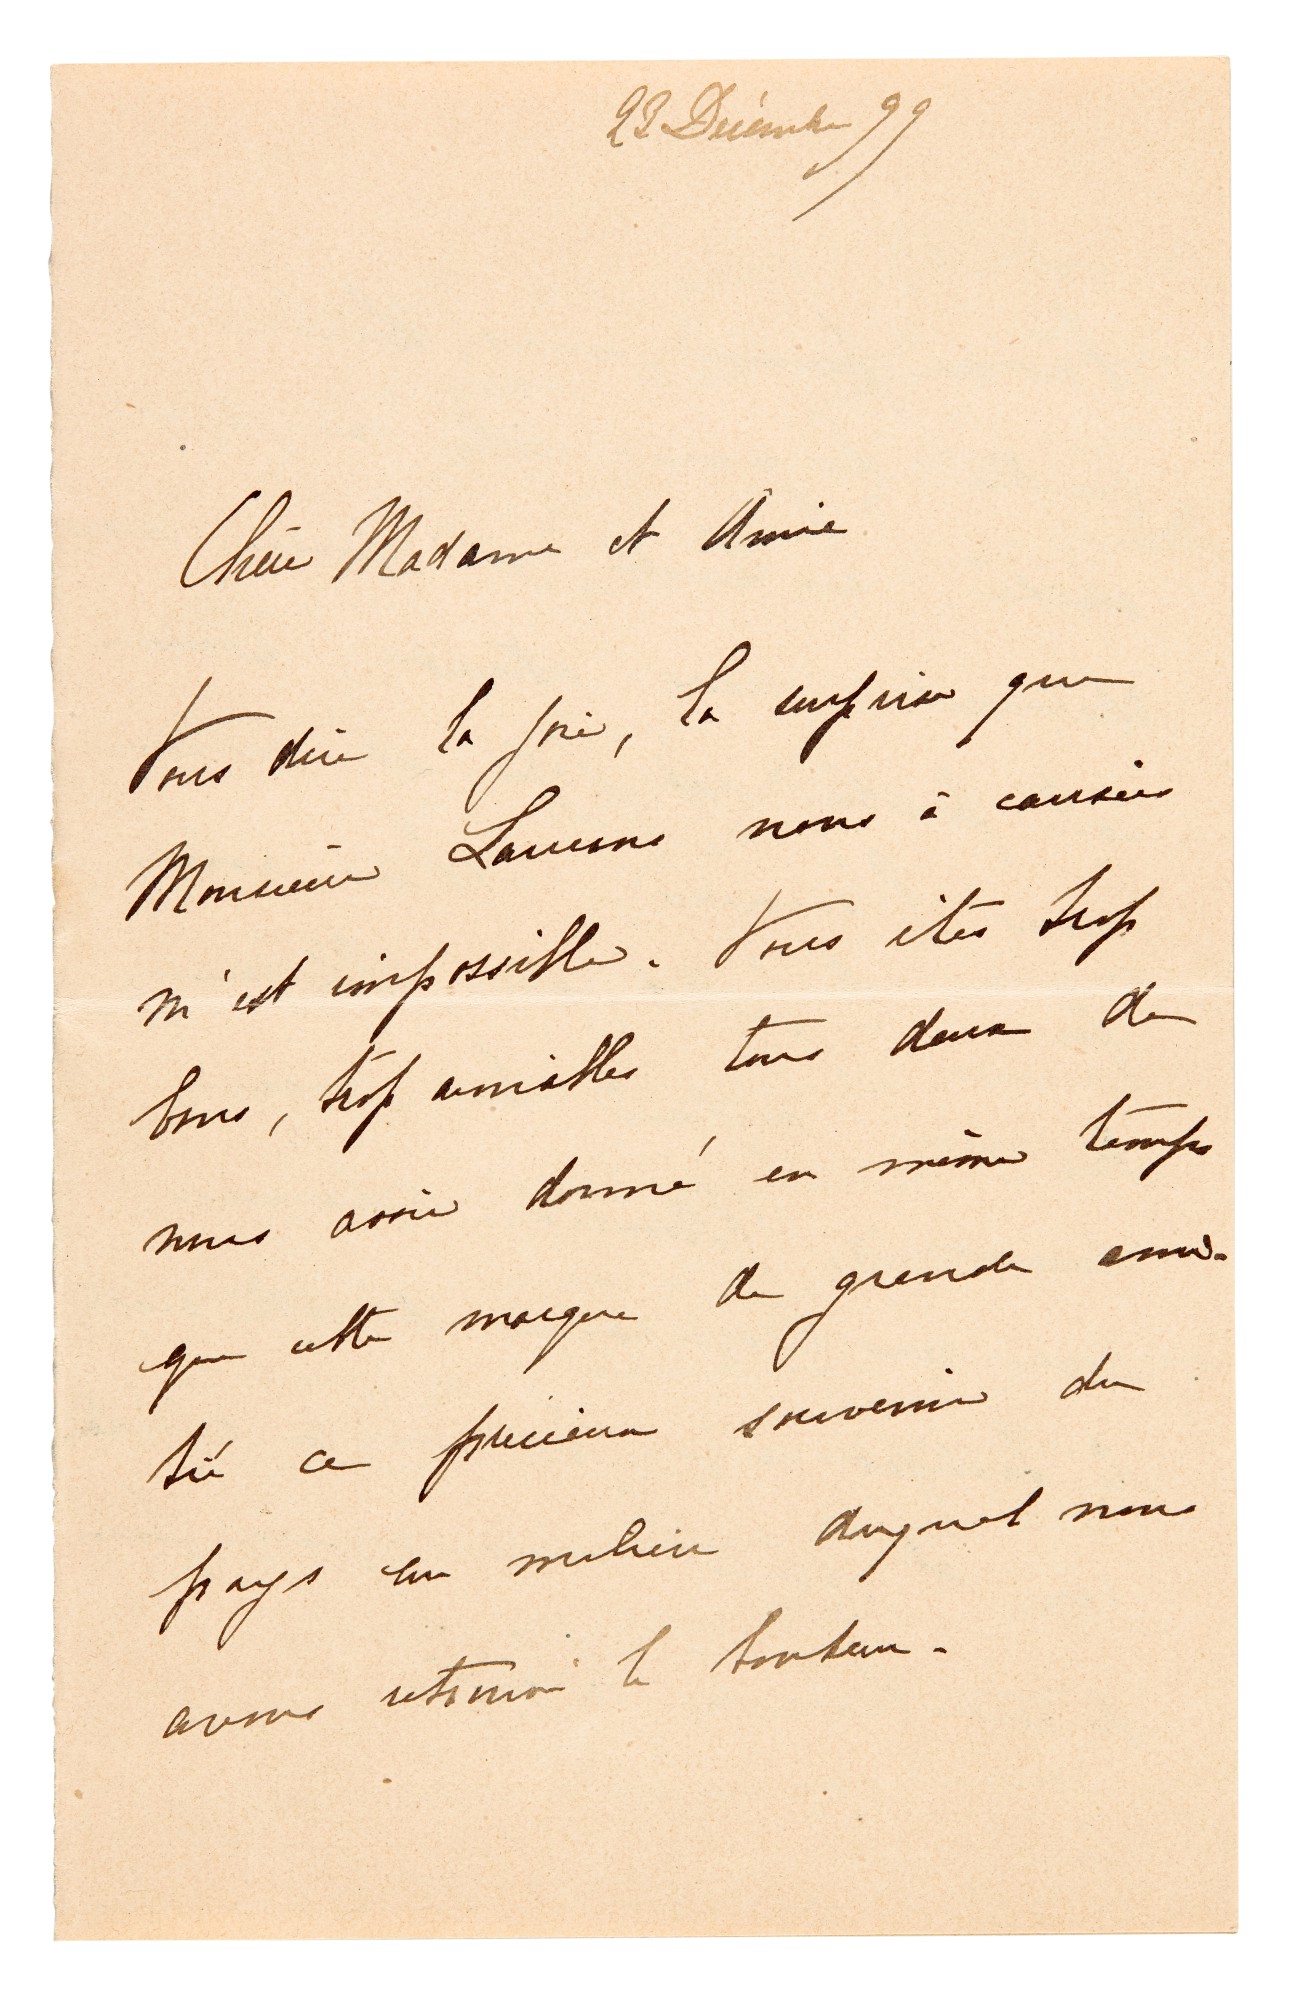 23 Décembre 99
Chère Madame et Amie
Vous dire la joie, la surprise que
Monsieur nous à causées
m'est impossible. Vous êtes trop
bons, trop aimables tous deux de
nous avoir donné en même temps
que cette marque de grande ami-
tié ce précieux souvenir du
pays au milieu duquel nous
avons retrouvé le bonheur.